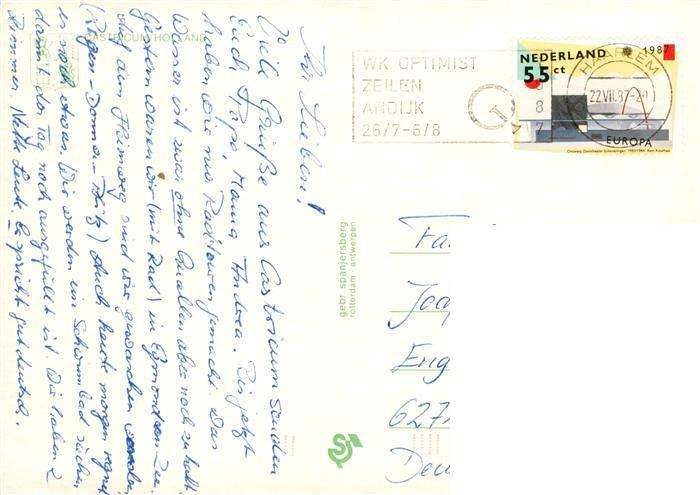 CASTRICUM HOLLAND
Ihr Lieben!
Viele Grüße aus Castricum senden
Euch Papa, Mama, Andrea. Bis jetzt
haben wir nur Radtouren gemacht. Das
Wasser ist zwar ohne Quallen aber noch zu kalt.
Gestern waren wir (mit Rad) in Egmond an Zee.
Auf dem Heimweg sind wir gewaschen worden
(Regen-Donner-Blitz) Auch heute morgen regnet
es noch etwas. Wir werden ein Schwimmbad suchen
damit der Tag noch ausgefüllt ist. Wir haben 2
Zimmer. Nette Leute. Er spricht gut deutsch.
gebr spanjersberg
rotterdam - antwerpen
WK OPTIMIST
ZEILEN
ANDIJK
26/7-6/8
1987
HAARLEM
22.VII.87-20
NEDERLAND
55 ct
1987
EUROPA
Fa
Joa
Eng
627
Deu